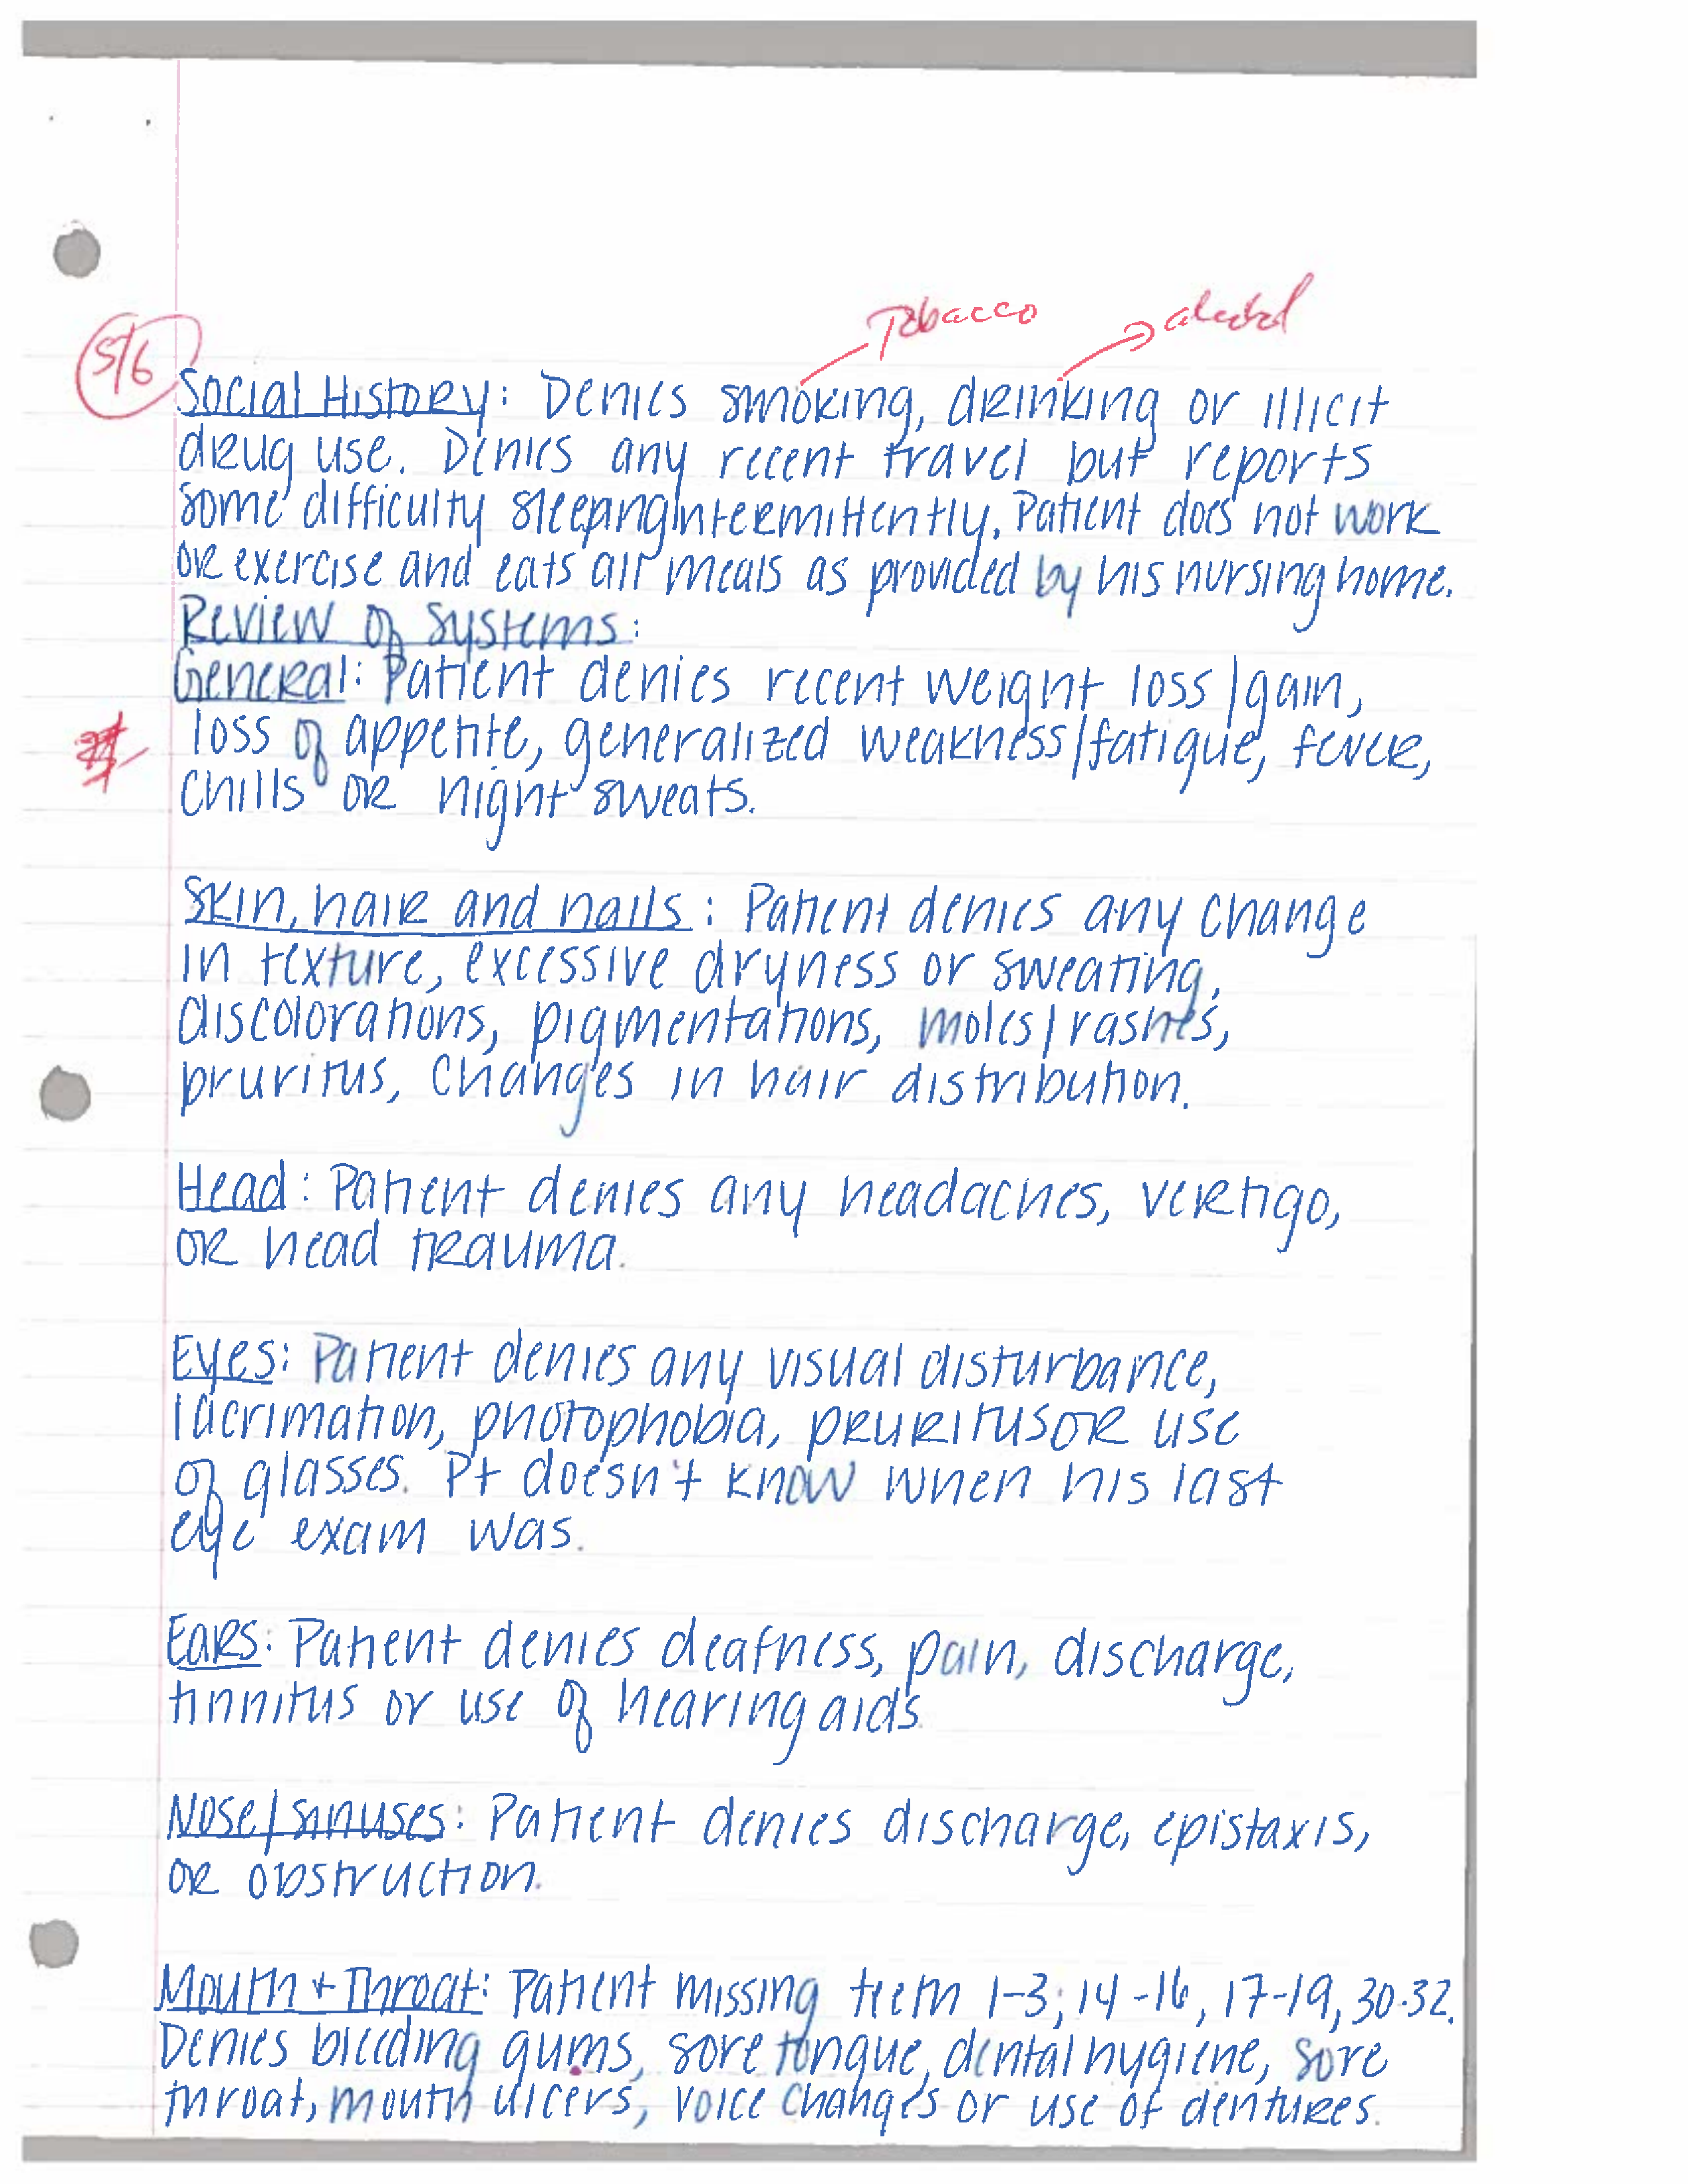 Tobacco alcohol
5/6
Social History: Denies smoking, drinking or illicit
drug use. Denies any recent travel but reports
some difficulty sleeping intermittently. Patient does not work
or exercise and eats all meals as provided by his nursing home.
Review of Systems:
General: Patient denies recent weight loss/gain,
loss of appetite, generalized weakness/fatigue, fever,
chills or night sweats.
Skin, hair and nails: Patient denies any change
in texture, excessive dryness or sweating,
discolorations, pigmentations, moles/rashes,
pruritus, changes in hair distribution.
Head: Patient denies any headaches, vertigo,
or head trauma.
Eyes: Patient denies any visual disturbance,
lacrimation, photophobia, pruritus or use
of glasses. Pt doesn't know when his last
eye exam was.
Ears: Patient denies deafness, pain, discharge,
tinnitus or use of hearing aids
Nose/sinuses: Patient denies discharge, epistaxis,
or obstruction.
Mouth + Throat: Patient missing teeth 1-3, 14-16, 17-19, 30-32.
Denies bleeding gums, sore tongue, dental hygiene, sore
throat, mouth ulcers, voice changes or use of dentures.